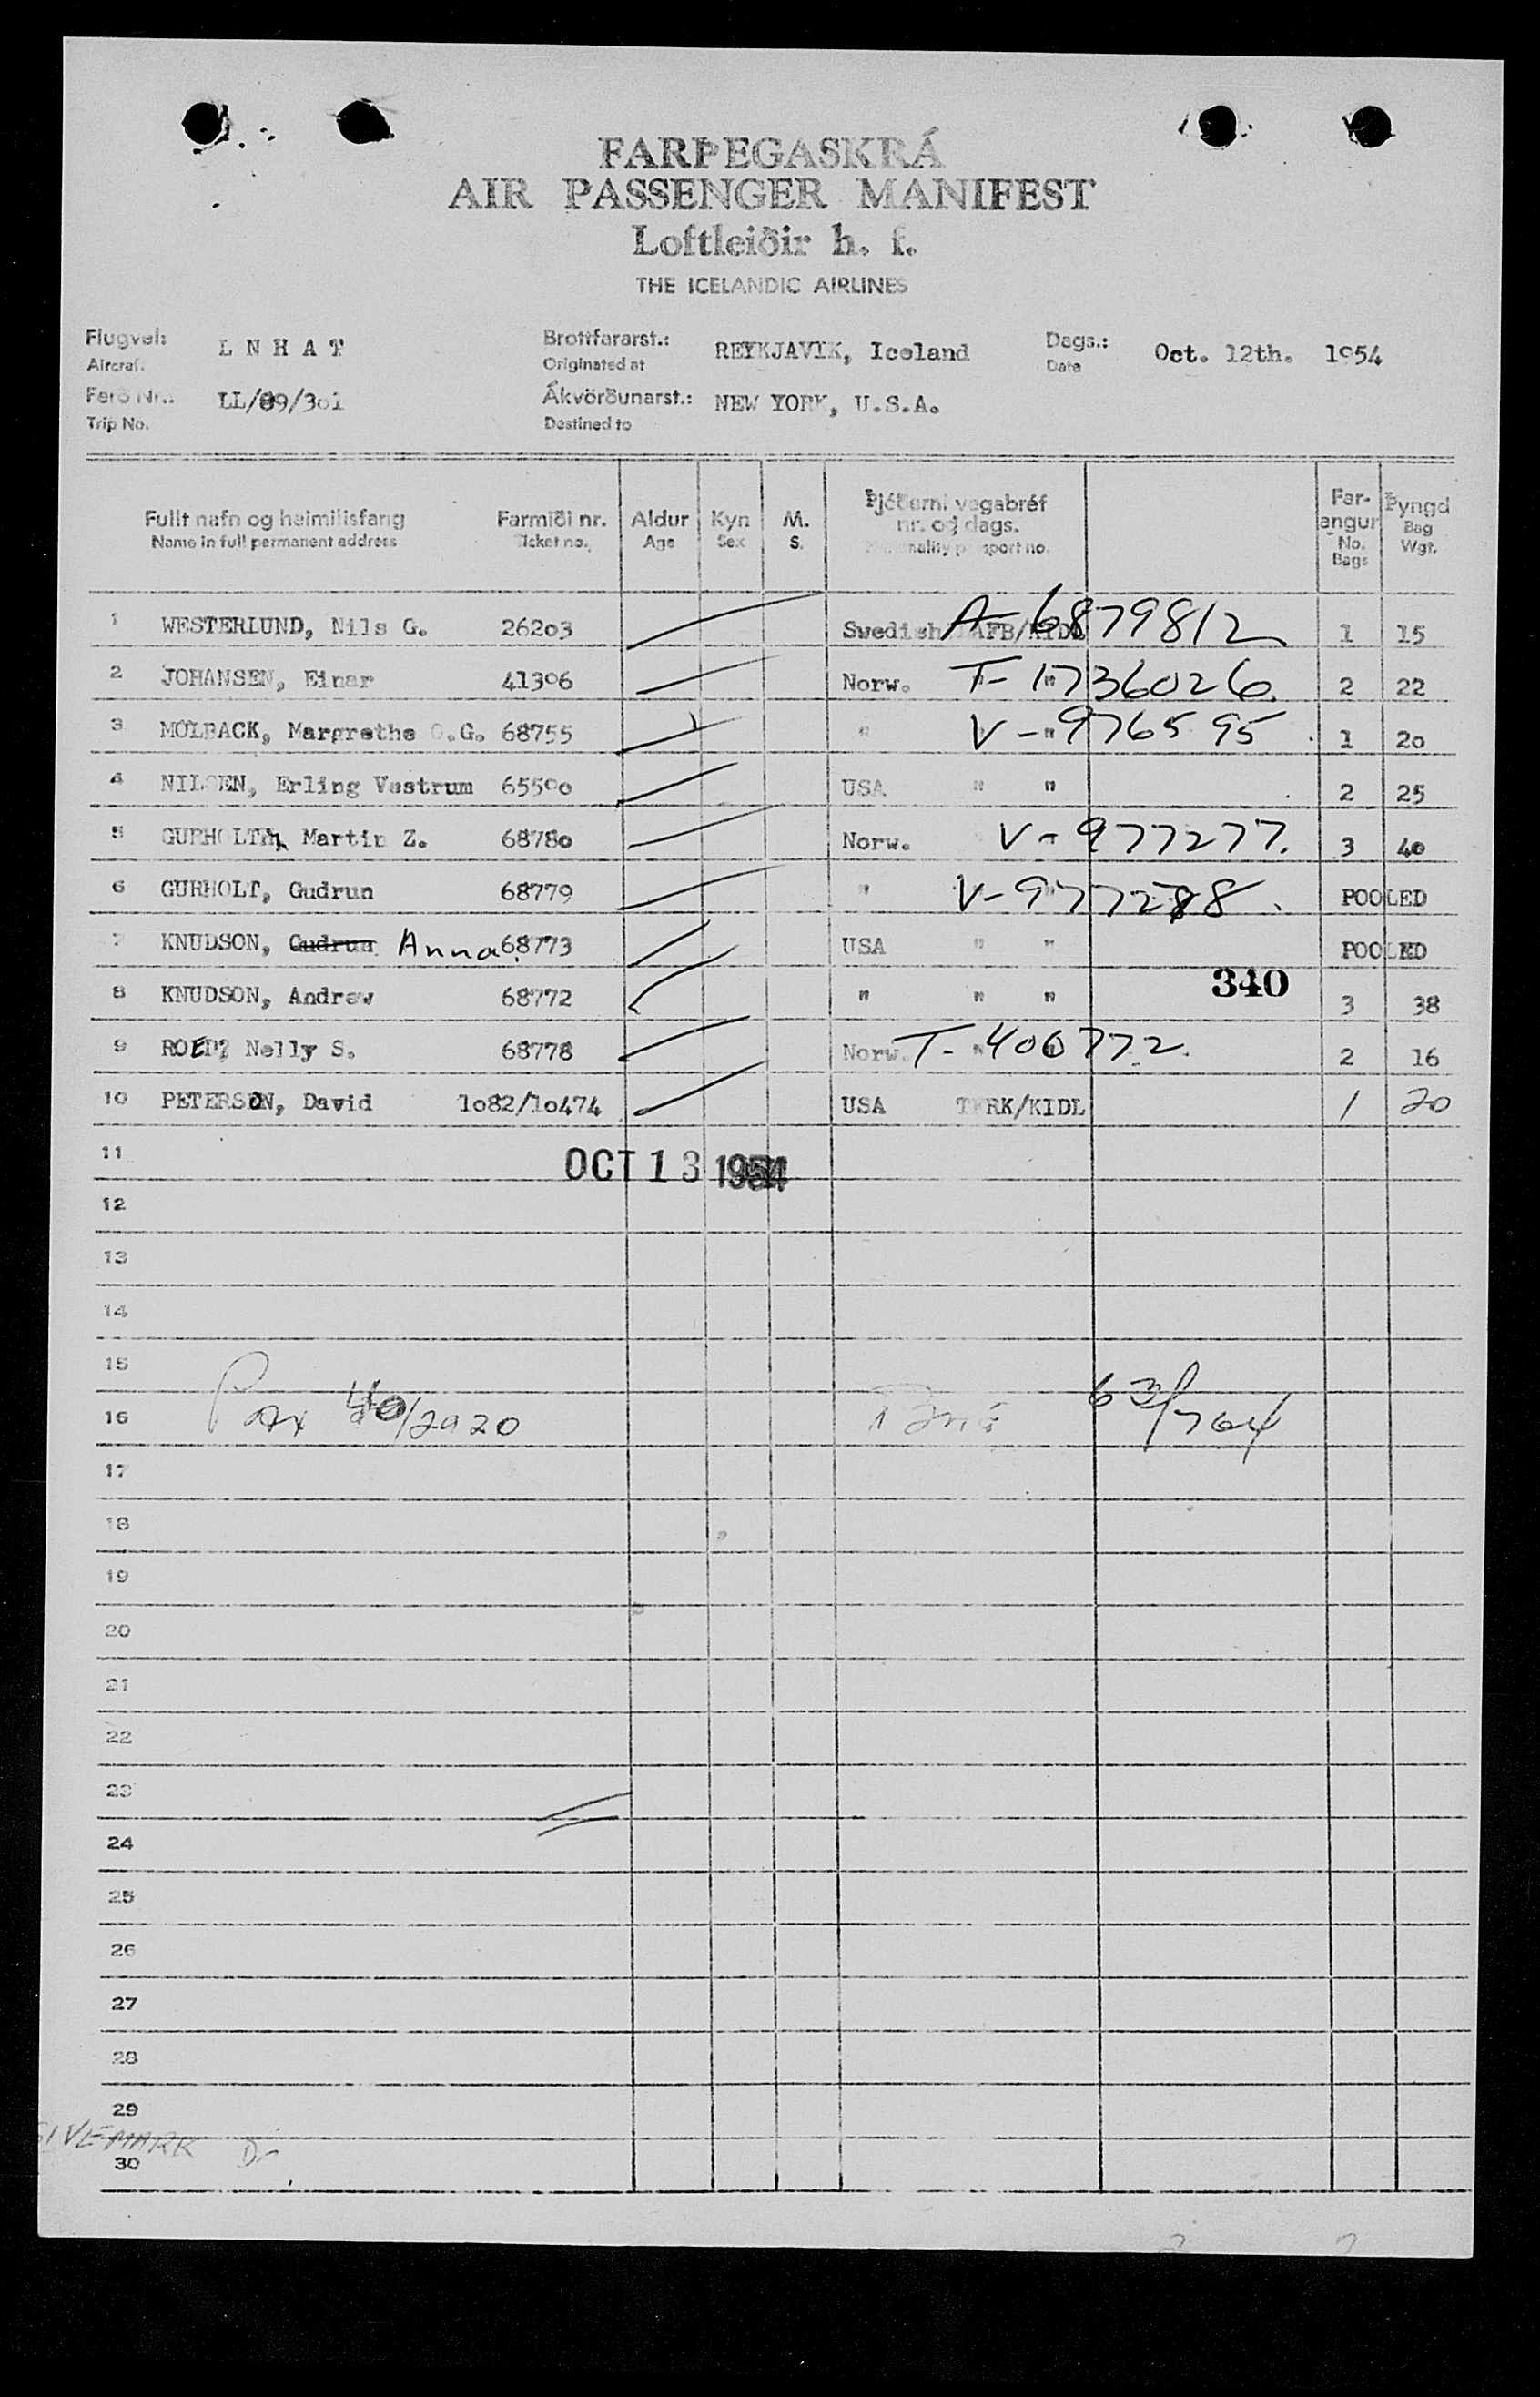 FARÞEGASKRÁ
AIR PASSENGER MANIFEST
Loftleiðir h. f.
THE ICELANDIC AIRLINES
Flugvél: L N H A T Brottfararst.: REYKJAVIK, Iceland Dags.: Oct. 12th. 1954
Aircraft. Originated at Date
Ferð Nr.: LL/89/301 Ákvörðunarst.: NEW YORK, U.S.A.
Trip No. Destined to
Fullt nafn og heimilisfang Farmiði nr. Aldur Kyn M. Þjóðerni vegabréf nr. og dags. Far-angur Þyngd
Name in full permanent address Ticket no. Age Sex S. Nationality passport no. No. Bags Bag Wgt.
1 WESTERLUND, Nils G. 26203 Swedish A-6879812 1 15
2 JOHANSEN, Einar 41306 Norw. T-1736026. 2 22
3 MOLBACK, Margrethe O.G. 68755 " V-976595 1 20
4 NILSEN, Erling Vestrum 65590 USA " " 2 25
5 GURHOLT, Martin Z. 68780 Norw. V-977277. 3 40
6 GURHOLT, Gudrun 68779 " V-977278. POOLED
7 KNUDSON, Gudrun Anna. 68773 USA " " POOLED
8 KNUDSON, Andrew 68772 " " " 340 3 38
9 ROED, Nelly S. 68778 Norw. T-406772. 2 16
10 PETERSON, David 1082/10474 USA TFRK/KIDL 1 20
11
OCT 13 1954
12
13
14
15
16 Pax 40/2920 63/764
17
18
19
20
21
22
23
24
25
26
27
28
29
30